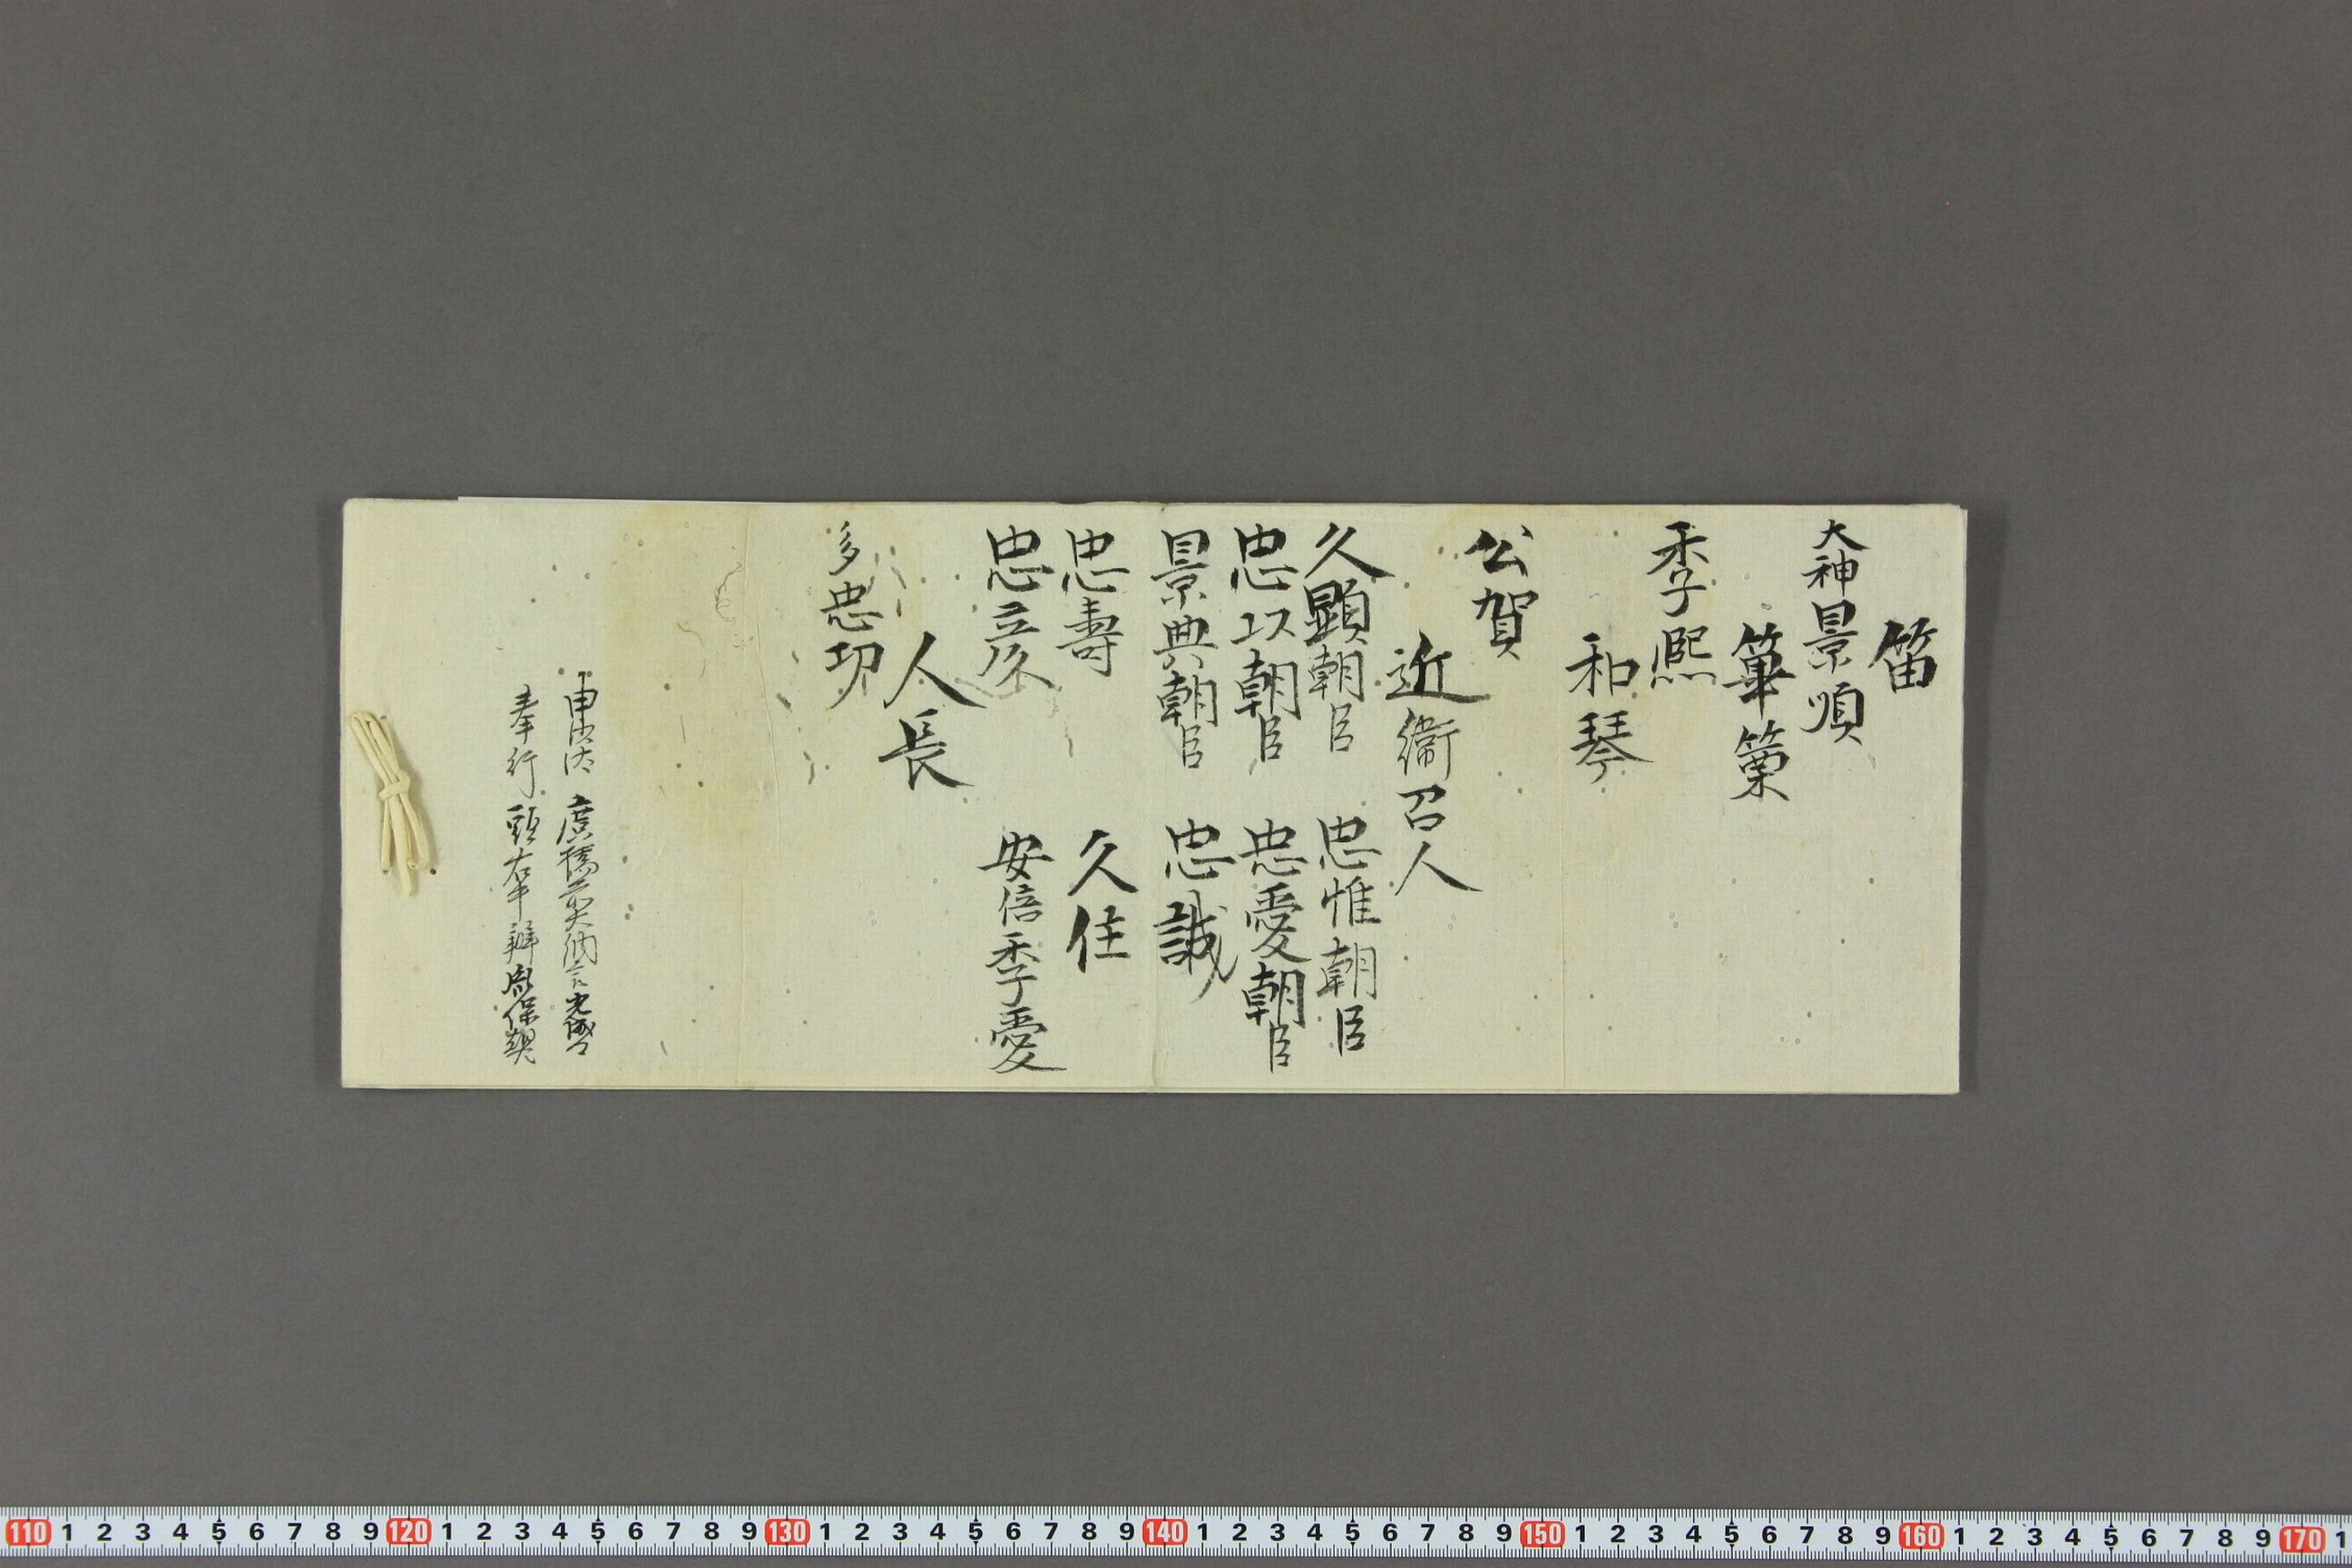 笛
大神景順
篳篥
季熈
和琴
公賀
近衛召人
久顕朝臣 忠惟朝臣
忠以朝臣 忠愛朝臣
景典朝臣 忠誠
忠壽 久住
忠彦 安倍季愛
人長
多忠功
申沙汰 廣橋前大納言
奉行 頭右中辨胤保朝臣
110 1 2 3 4 5 6 7 8 9 120 1 2 3 4 5 6 7 8 9 130 1 2 3 4 5 6 7 8 9 140 1 2 3 4 5 6 7 8 9 150 1 2 3 4 5 6 7 8 9 160 1 2 3 4 5 6 7 8 9 170 1